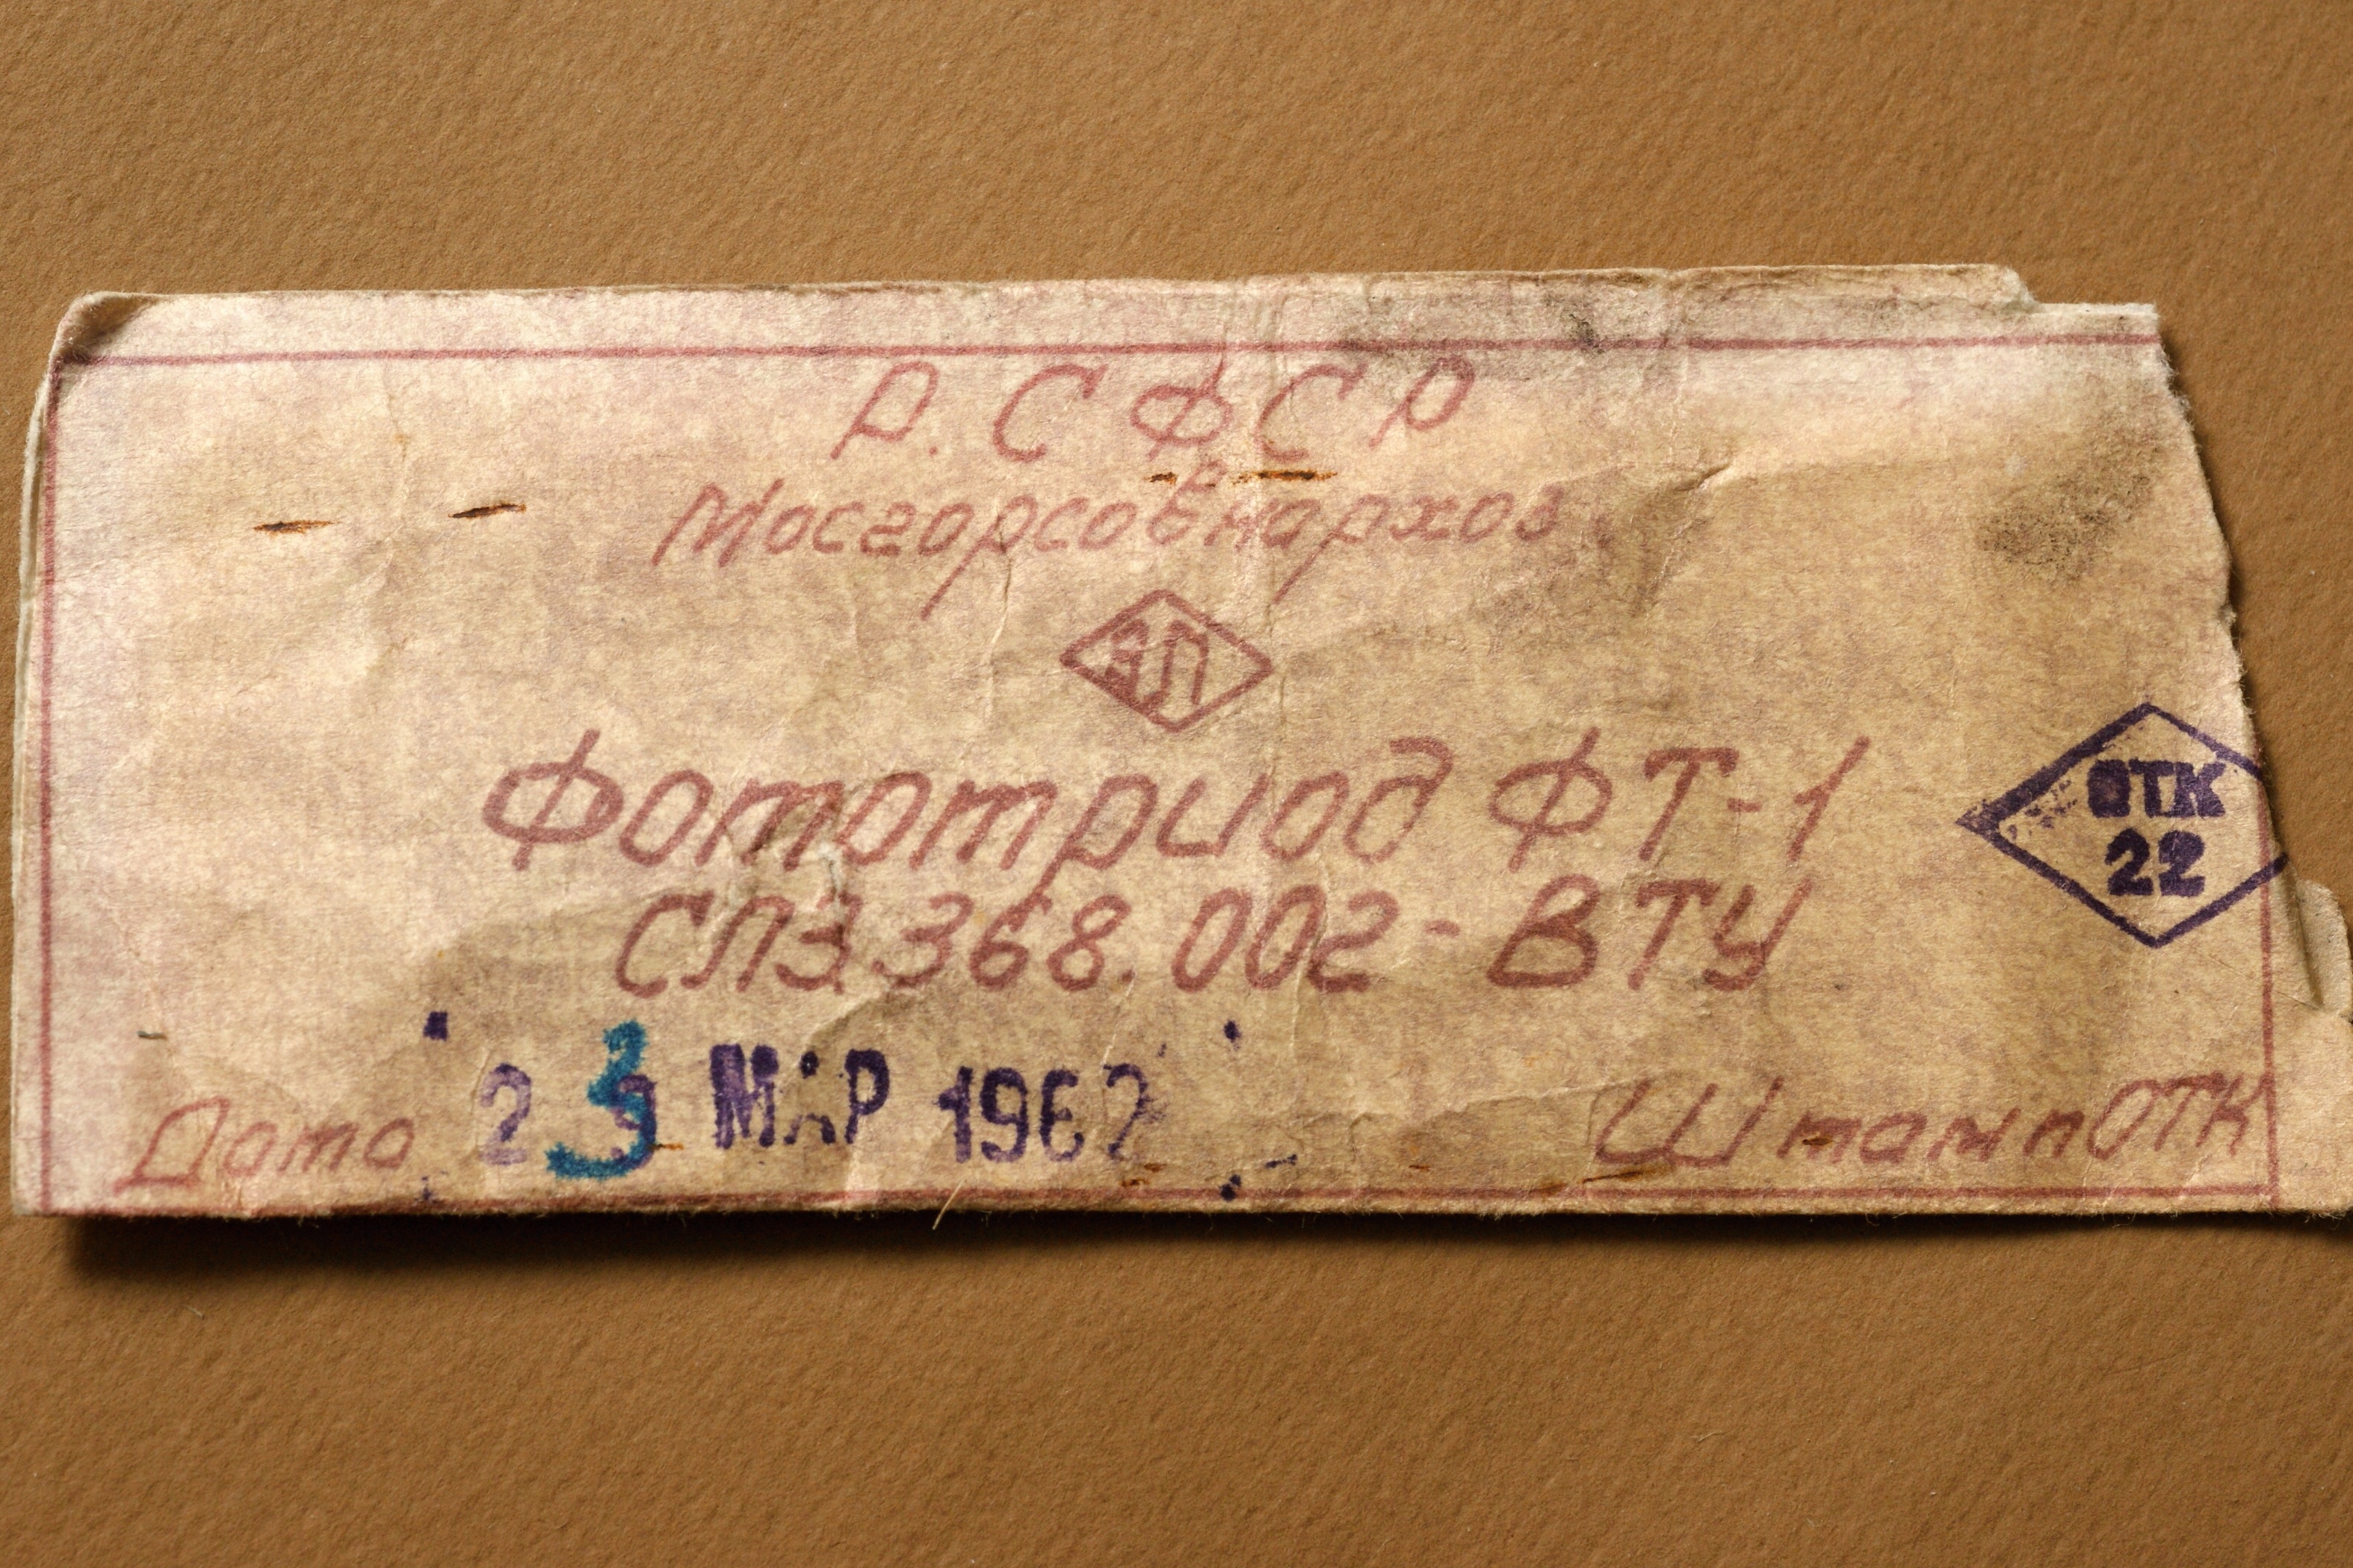 Р.СФСР
Мосгорсовнархоз
ЗП
Фототриод ФТ-1
СЛ3.368.002-ВТУ
ОТК
22
Дата 23 МАР 1962
Штамп ОТК